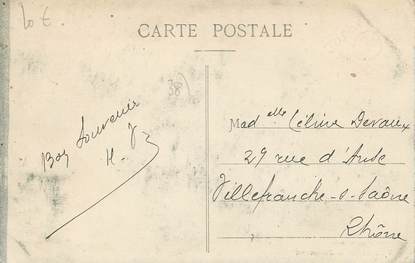 10 €
CARTE POSTALE
38
Bon Souvenir
H. J
Mad elle Céline Devaux
29 rue d'Anse
Villefranche-s-Saône
Rhône